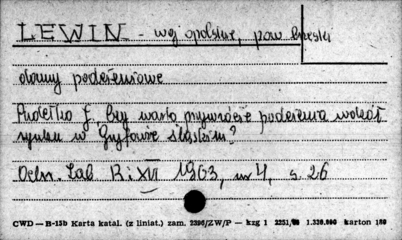 LEWIN - woj opolskie, pow brzeski
domy podcieniowe
Pudełko J. Czy warto przywrócić podcienia wokół
rynku w Gryfowie śląskim?
Ochr. Zab R: XVI 1963, nr 4, s. 26
CWD — B-15b Karta katal. (z liniat.) zam. 2396/ZW/P — kzg 1 2251, 1.330.000 karton 180